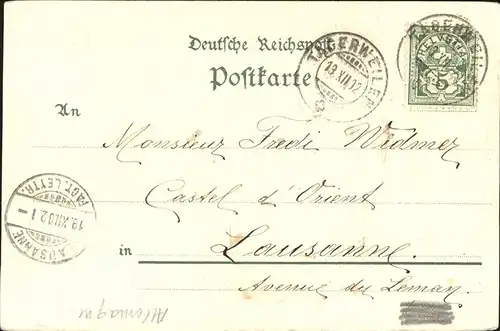 Deutsche Reichspost
Postkarte
TÄGERWEILEN
18.XII.02
HELVETIA
5
An
Monsieur Fredi Widmer
Castel d'Orient
in Lausanne.
Avenue du Léman
LAUSANNE
19.XII.02.I
FACT. LETTR.
Allemagne